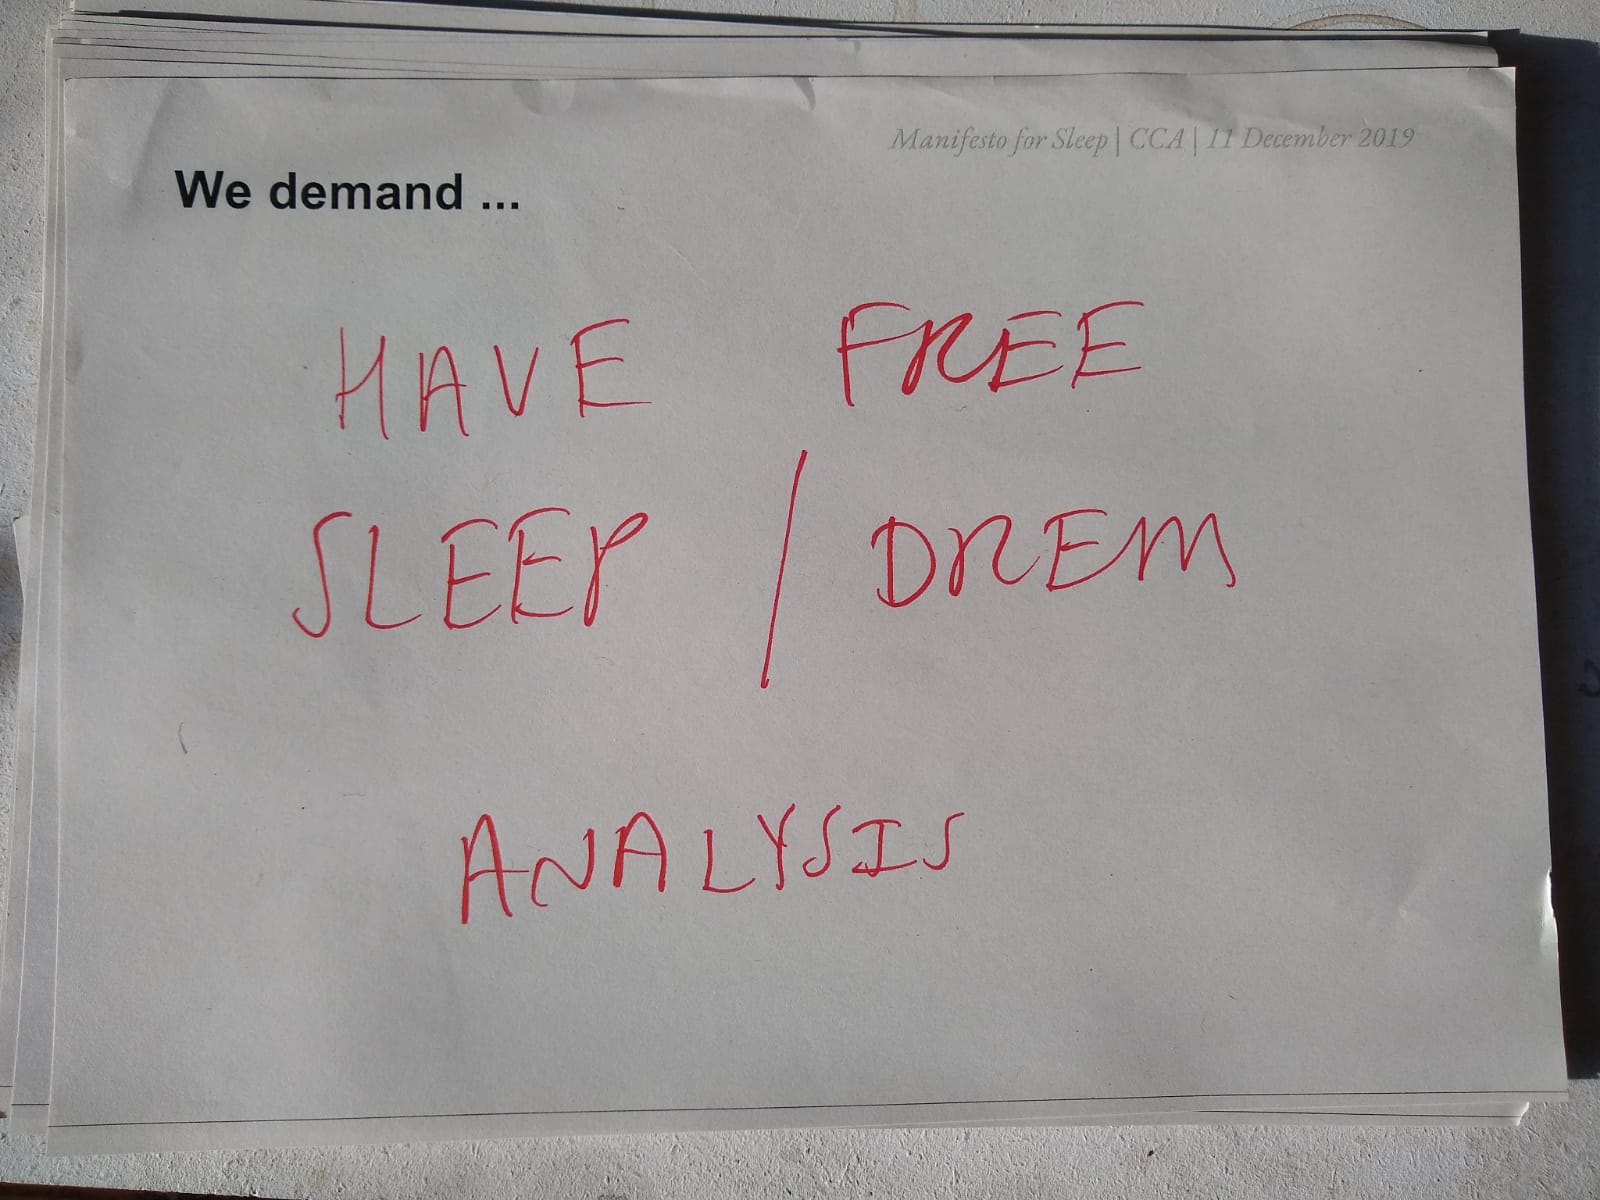 Manifesto for Sleep | CCA | 11 December 2019
We demand ...
HAVE FREE
SLEEP / DREM
ANALYSIS